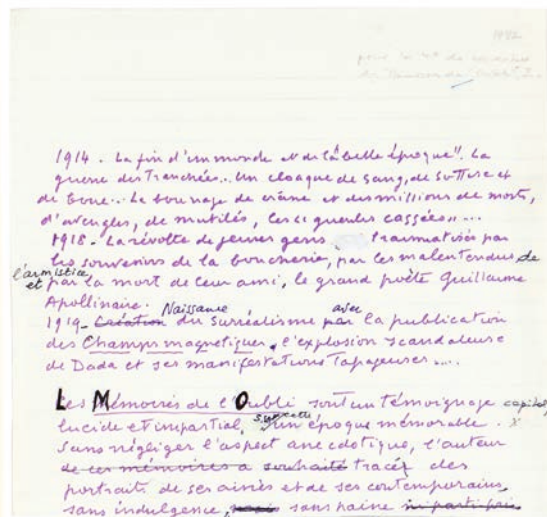 1982
pour la 4e de couverture
des Mémoires de l'Oubli, 2.
1914 - La fin d'un monde et de la "belle époque". La
guerre des Tranchées.. Un cloaque de sang, de sottise et
de boue.. Le bourrage de crâne et des millions de morts,
d'aveugles, de mutilés, les "gueules cassées"...
1918 - La révolte de jeunes gens traumatisés par
les souvenirs de la boucherie, par les malentendus de
l'armistice, et par la mort de leur ami, le grand poète Guillaume
Apollinaire.
1919 - Création Naissance du surréalisme par avec la publication
des Champs magnetiques, l'explosion scandaleuse
de Dada et ses manifestations Tapageuses....
Les Mémoires de l'Oubli sont un témoignage capital,
lucide et impartial, sur cette un époque mémorable. x
Sans négliger l'aspect anecdotique, l'auteur
de ces mémoires a souhaité tracé des
portraits de ses ainés et de ses contemporains,
sans indulgence, mais sans haine ni parti pris